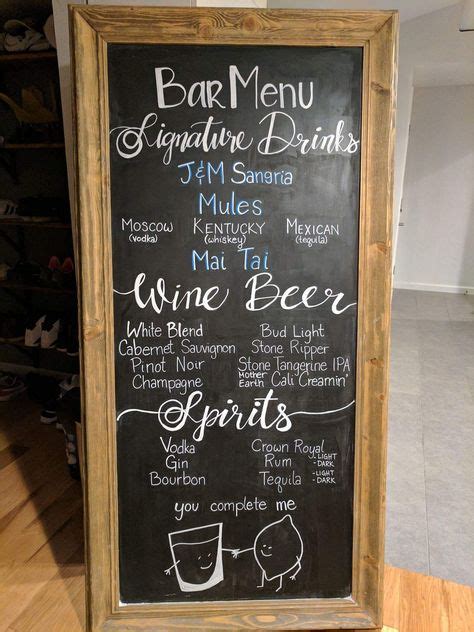 Bar Menu
Signature Drinks
J&M Sangria
Mules
Moscow Kentucky Mexican
(vodka) (whiskey) (tequila)
Mai Tai
Wine Beer
White Blend Bud Light
Cabernet Sauvignon Stone Ripper
Pinot Noir Stone Tangerine IPA
Champagne Mother Earth Cali Creamin'
Spirits
Vodka Crown Royal
Gin Rum -LIGHT -DARK
Bourbon Tequila -LIGHT -DARK
you complete me